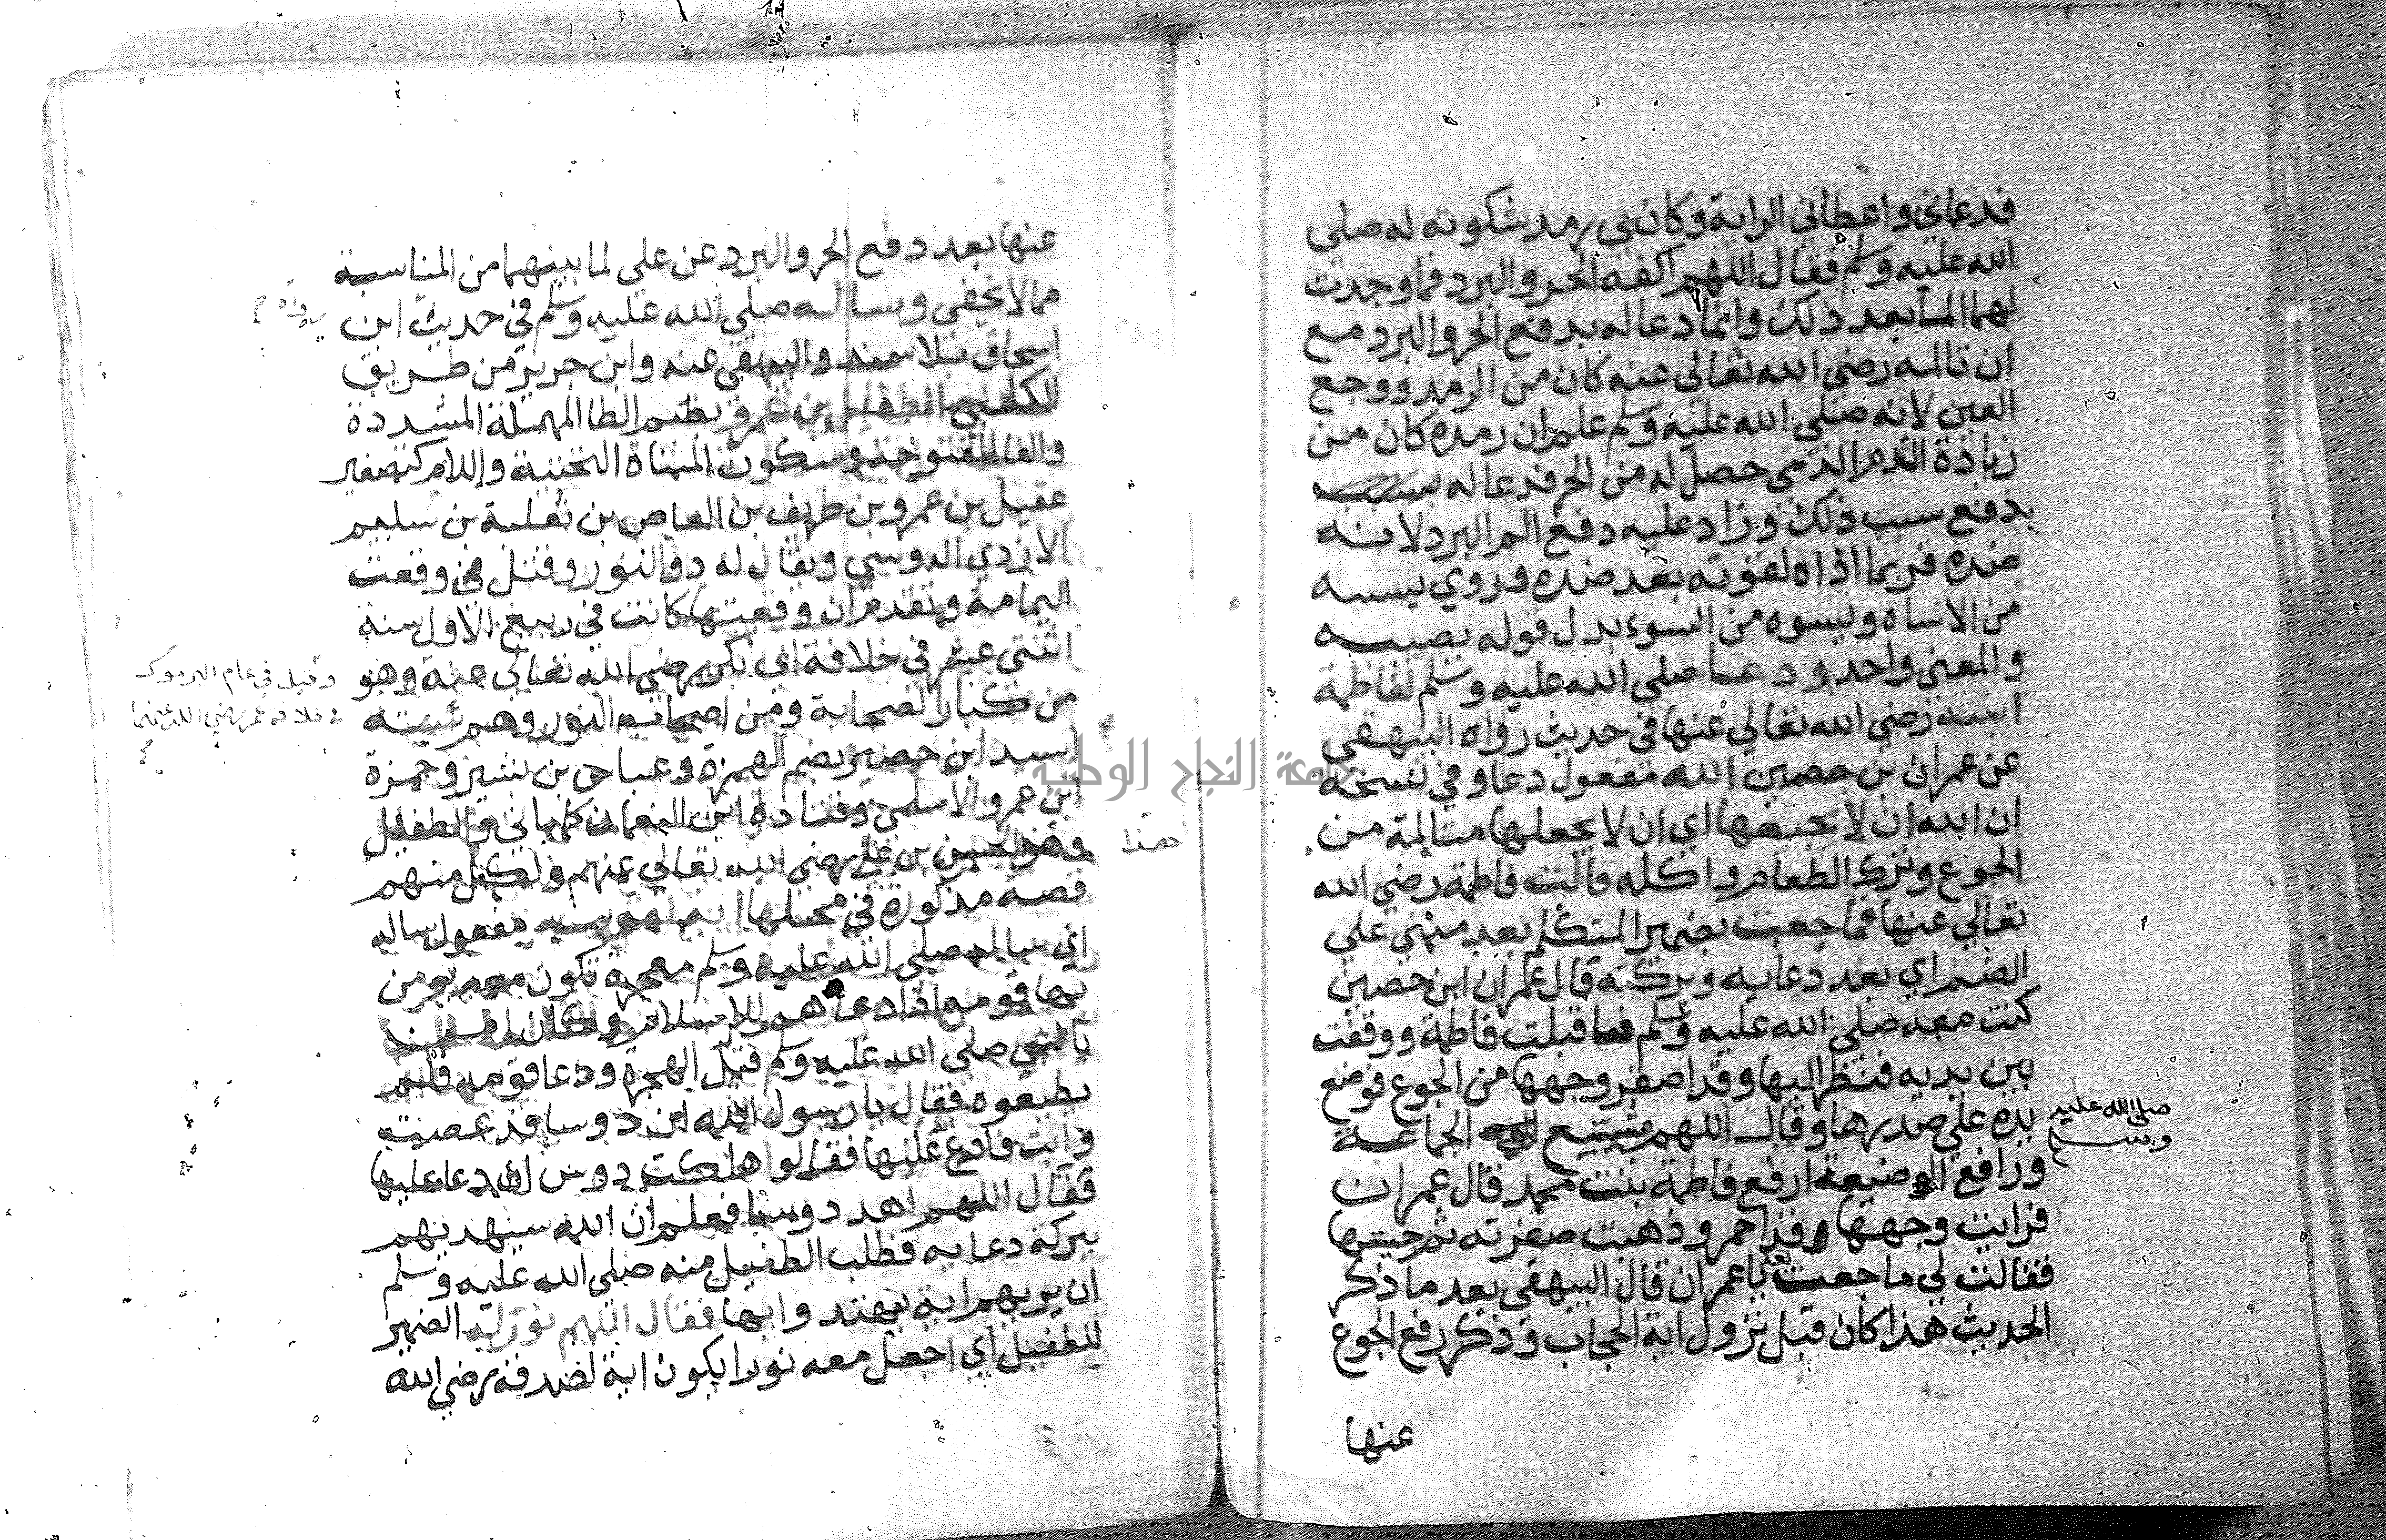 فدعاني واعطاني الراية وكان بي رمد شكوته له صلي
الله عليه وسلم فقال اللهم اكفه الحر والبرد فما وجدت
لهما المابعد ذلك وانما دعا له بدفع الحر والبرد مع
ان تالمه رضي الله تعالي عنه كان من الرمد ووجع
العين لانه صلي الله عليه وسلم علم ان رمده كان من
زيادة الدم الذي حصل له من الحر فدعا له
بدفع سبب ذلك وزاد عليه دفع الم البرد لانه
ضده فربما اذاه لقوته بعد ضده وروي يسيه
من الاساه ويسوه من السوء بدل قوله يصيبه
والمعني واحد ودعا صلي الله عليه وسلم لفاطمة
ابنته رضي الله تعالي عنها في حديث رواه البيهقي
عن عمران بن حصين الله مفعول دعا وفي نسخة
ان الله ان لا يجيعها اي ان لا يجعلها متالمة من
الجوع وترك الطعام واكله قالت فاطمة رضي الله
تعالي عنها فما جعت بضمير المتكلم بعد مبني علي
الضم اي بعد دعايه وبركته قال عمران ابن حصين
كنت معه صلي الله عليه وسلم فاقبلت فاطمة ووقفت
بين يديه فنظر اليها وقد اصفر وجهها من الجوع فوضع
صلي الله عليه
وسلم
يده علي صدرها وقال اللهم مشبع الجماعة
ورافع الوضيعة ارفع فاطمة بنت محمد قال عمران
فرايت وجهها وقد احمر وذهبت صفرته ثم جيتها
فقالت لي ما جعت بعد يا عمران قال البيهقي بعد ما ذكر
الحديث هذا كان قبل نزول اية الحجاب وذكر رفع الجوع
عنها
عنها بعد دفع الحر والبرد عن علي لما بينهما من المناسبة
مما لا يخفي وساله صلي الله عليه وسلم في حديث ابن
رواه
اسحاق بلا سند والبيهقي عنه وابن جرير من طريق
الكلبي الطفيل بن عمرو بضم الطا المهملة المشددة
والفا المفتوحة وسكون المثناة التحتية واللام كتصغير
عقيل بن عمرو بن طريف بن العاص بن ثعلبة بن سليم
الازدي الدوسي ويقال له ذو النور وقتل في وقعت
اليمامة وتقدم ان وقعتها كانت في ربيع الاول سنة
اثنتي عشر في خلافة ابي بكر رضي الله تعالي عنه وهو
وقيل في عام اليرموك
في خلافة عمر رضي الله عنهما
من كبار الصحابة ومن اصحاب النور وهم ستة
اسيد ابن حضير بضم الهمزة وعباد بن بشير وحمزة
ابن عمرو الاسلمي وقتادة ابن النعمان كما ياتي والطفيل
هذا
والحسين بن علي رضي الله تعالي عنهم ولكل منهم
قصة مذكورة في محلها اية لقومه مفعول ساله
اي ساله صلي الله عليه وسلم معجزة تكون معه يومن
بها قومه اذا دعاهم للاسلام وكان
بالنبي صلي الله عليه وسلم قبل الهجرة ودعا قومه فلم
يطيعوه فقال يا رسول الله ان دوسا قد عصت
وابت فادع عليها فقالوا هلكت دوس ان دعا عليها
فقال اللهم اهد دوسا فعلم ان الله سيهديهم
ببركة دعايه فطلب الطفيل منه صلي الله عليه وسلم
ان يريهم اية يهتدوا بها فقال اللهم نور له الضمير
للطفيل اي اجعل معه نورا يكون اية لصدقه رضي الله
جامعة النجاح الوطنية